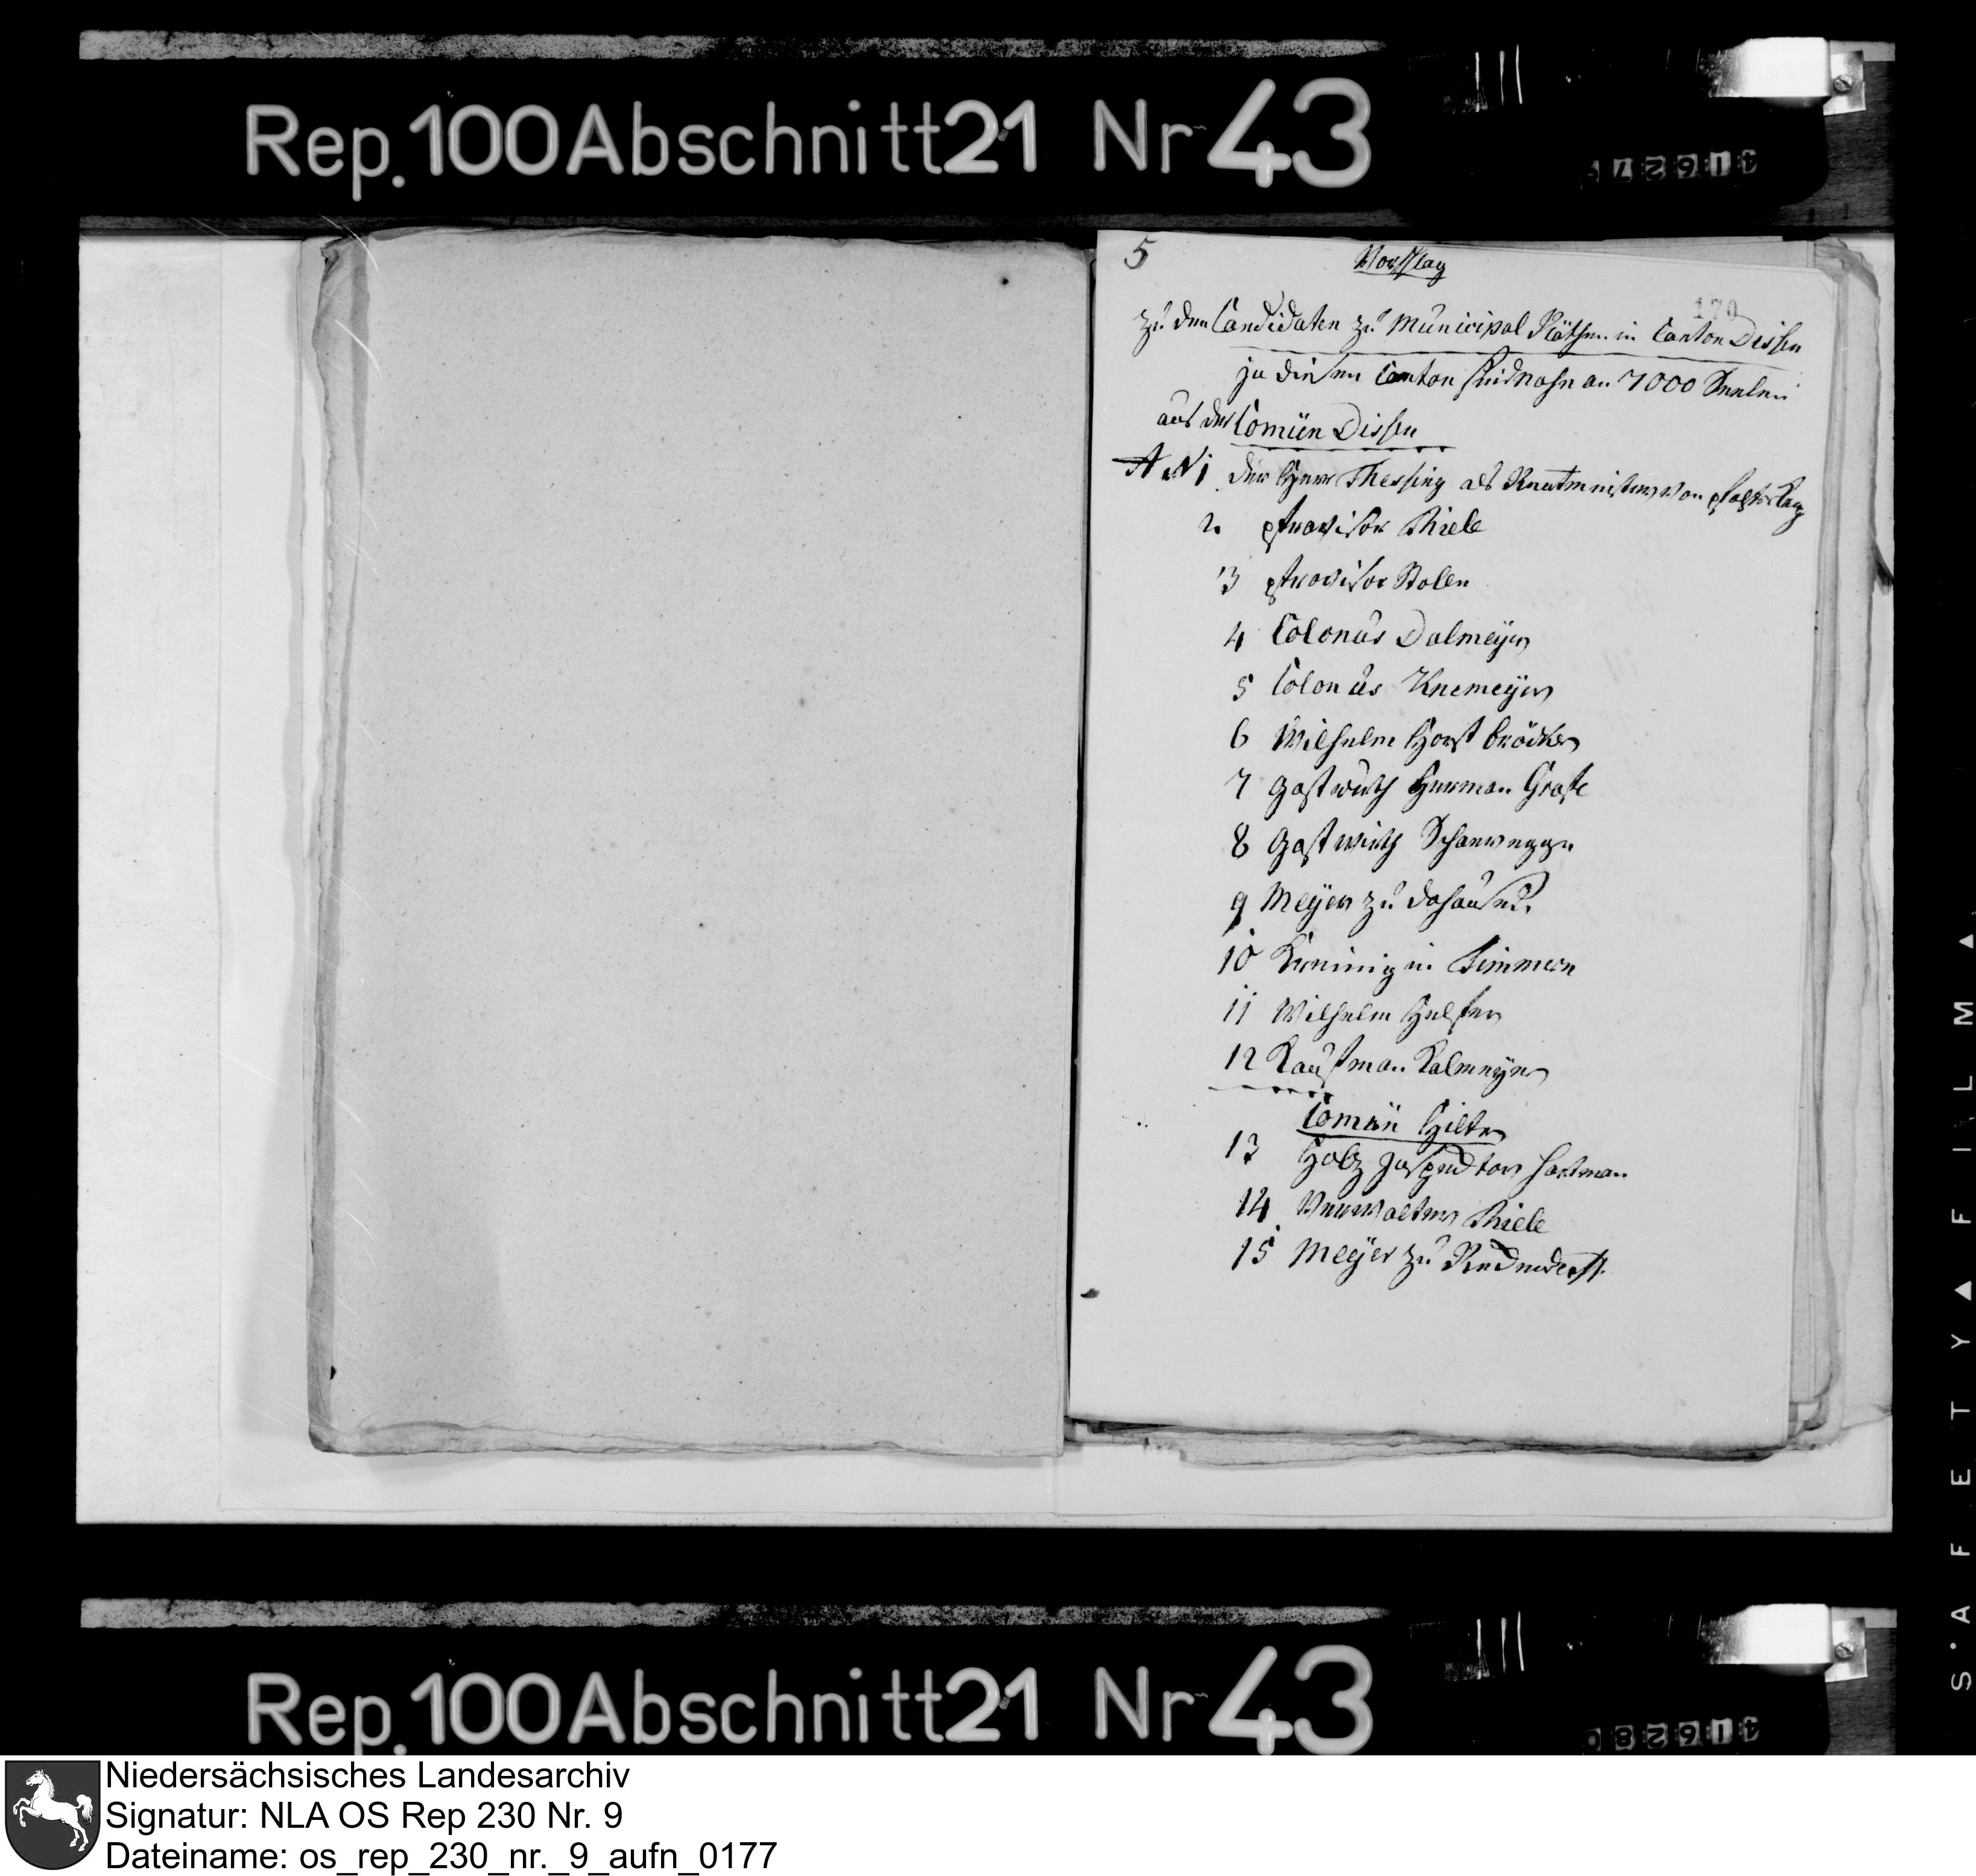 Rep. 100 Abschnitt 21 Nr 43
5
Vorschlag
170
zu den Candidaten zu Municipal Räthen in Canton Dissen
zu diesem Canton sind nahe an 7000 Seelen
aus der Comün Dissen
A N 1 der Herr Thessing als
2 provisor Thiele
3 provisor Stolen
4 Colonus Dalmeÿer
5 Colonus Knemeÿer
6 Wilhelm Horst bröcker
7 Gastwirth Herman Grofe
8 Gastwirth Scharwegge
9 Meÿer zu
10 Kreimig in Timmern
11 Wilhelm Helfer
12 Kaufman Kalmeyer
Comün Hilter
13 Holz Inspector Hartman
14 Verwalter Thiele
15 Meÿer zu
SAFETY ▲ FILM ▲
Rep. 100 Abschnitt 21 Nr 43
Niedersächsisches Landesarchiv
Signatur: NLA OS Rep 230 Nr. 9
Dateiname: os_rep_230_nr._9_aufn_0177